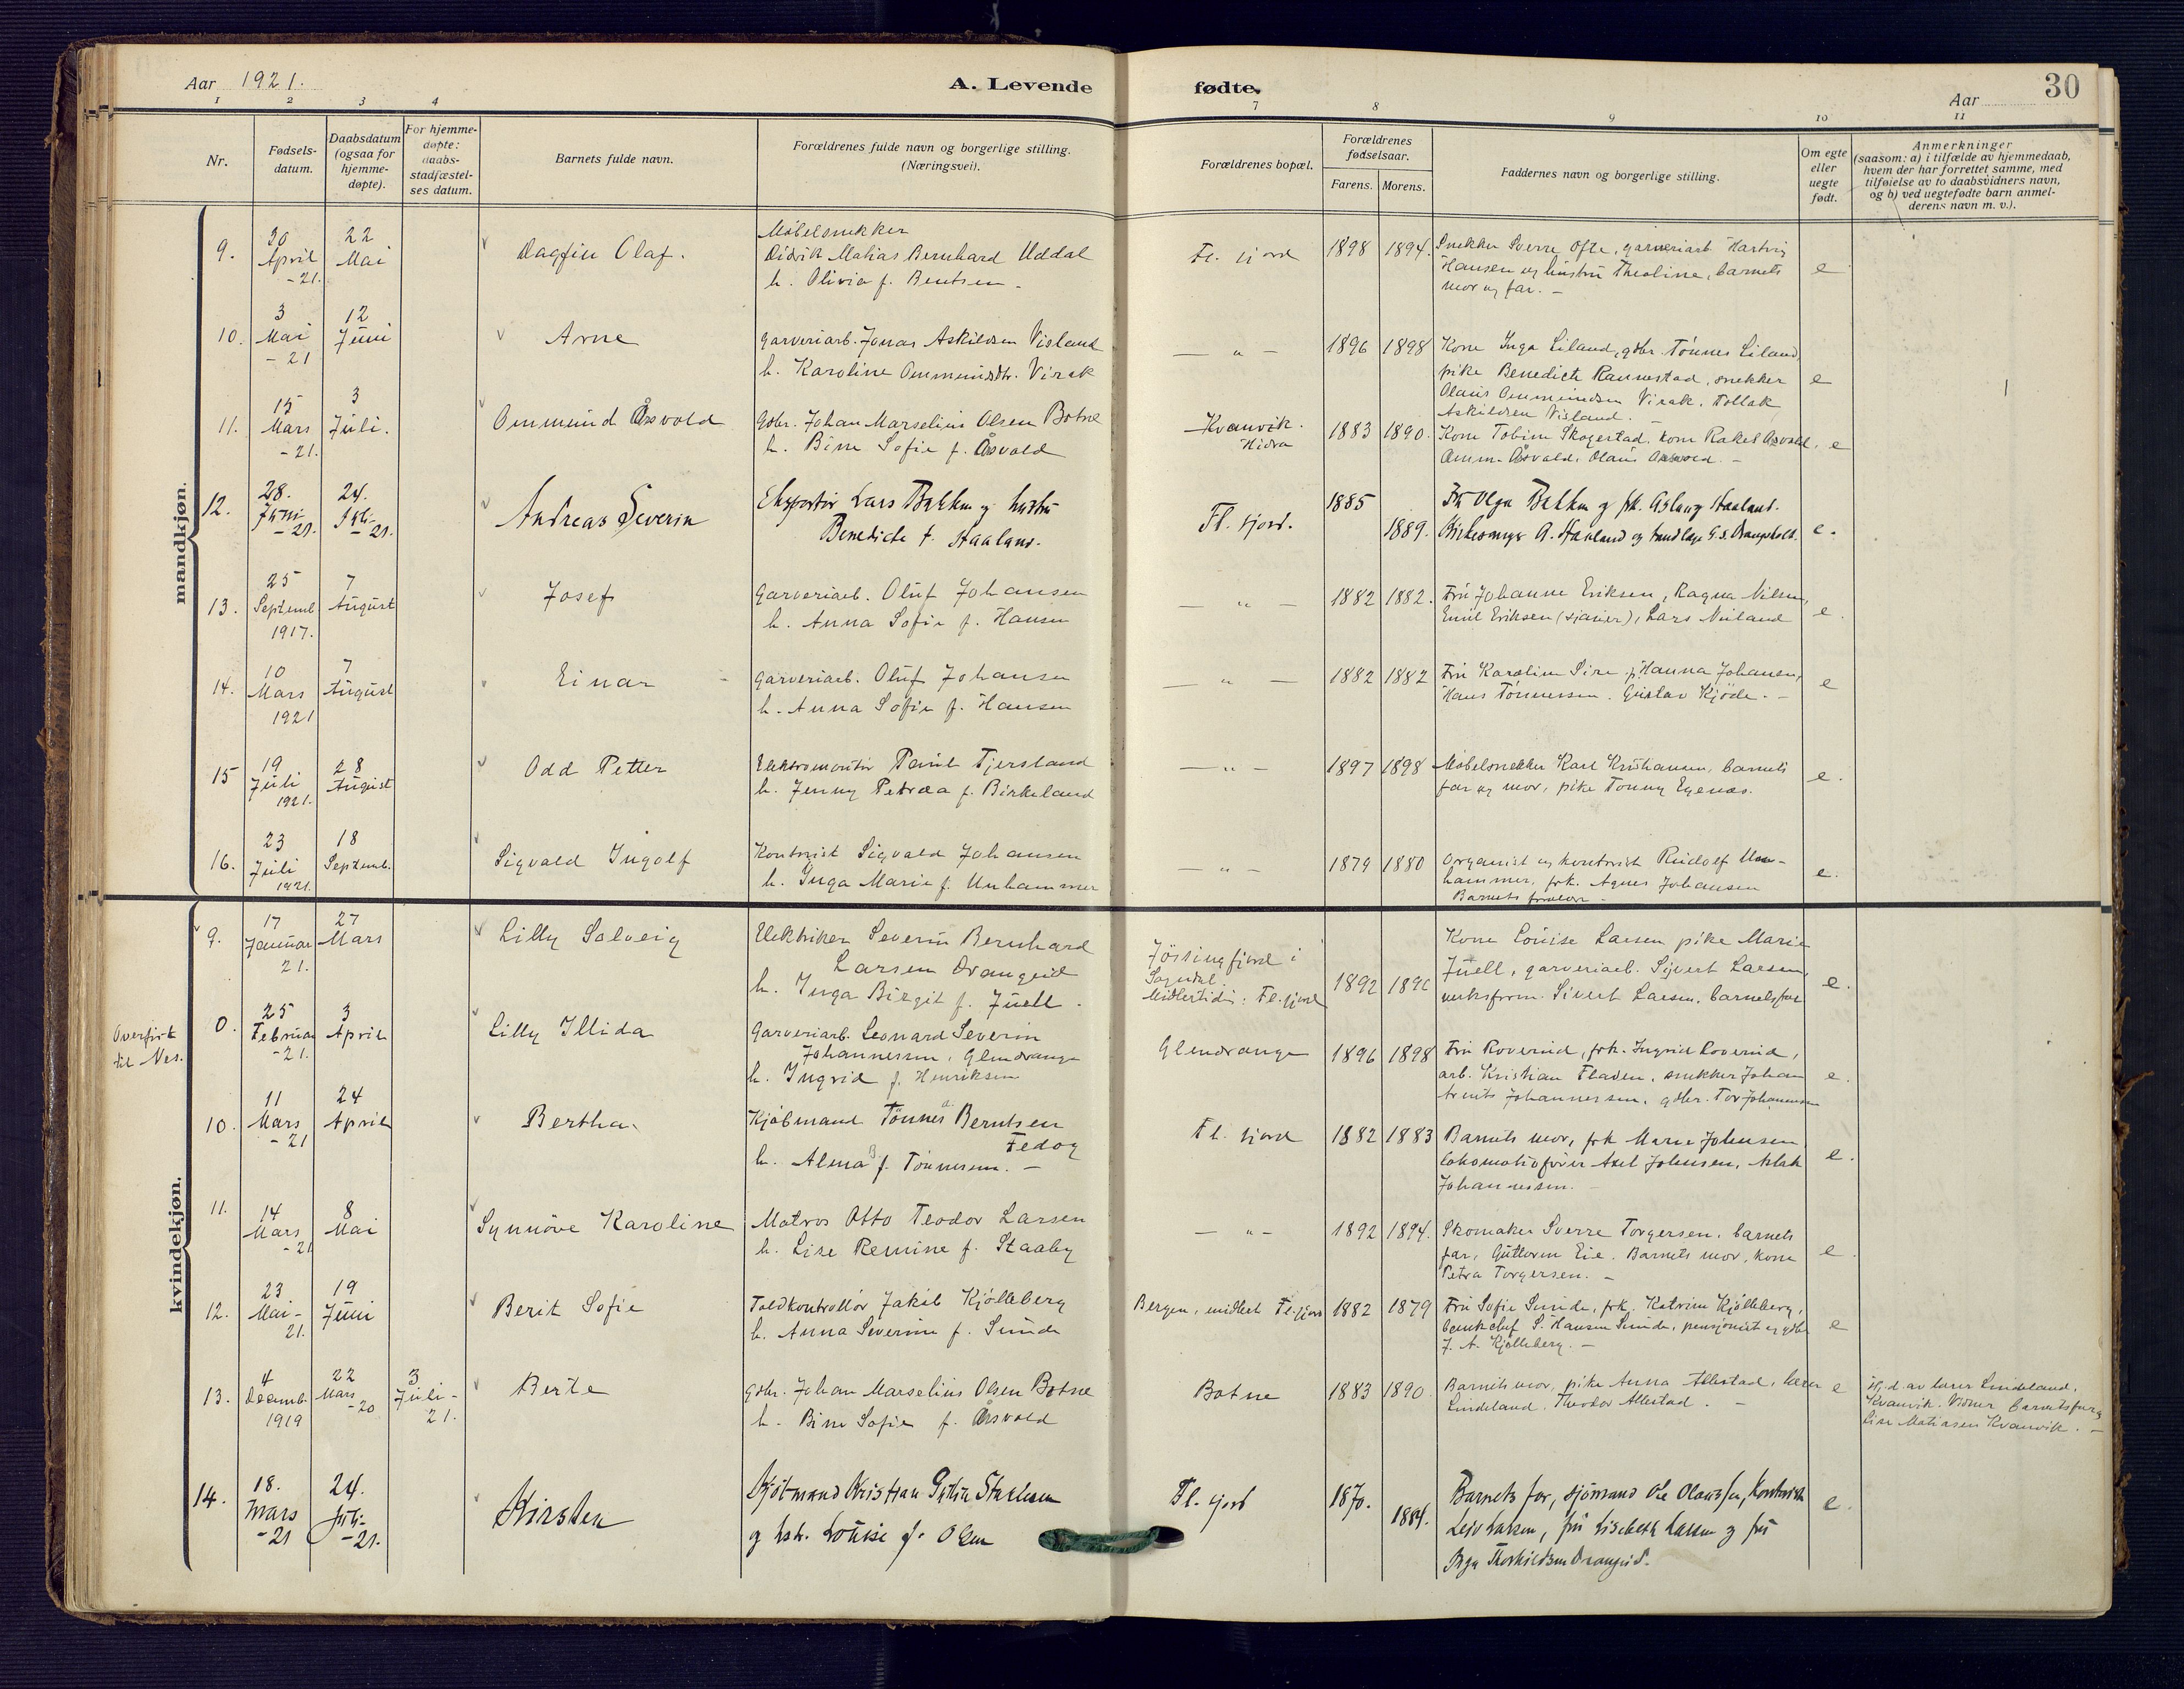 Aar 1921.
A. Levende
fødte.
Aar
30
1
2
3
4
7
8
9
10
11
Nr.
Fødsels-
datum.
Daabsdatum
(ogsaa for
hjemme-
døpte).
For hjemme-
døpte:
daabs-
stadfæstel-
ses datum.
Barnets fulde navn.
Forældrenes fulde navn og borgerlige stilling.
(Næringsvei).
Forældrenes bopæl.
Forældrenes
fødselsaar.
Farens. Morens.
Faddernes navn og borgerlige stilling.
Om egte
eller
uegte
født.
Anmerkninger
(saasom: a) i tilfælde av hjemmedaab,
hvem der har forrettet samme, med
tilføielse av to daabsvidners navn,
og b) ved uegtefødte barn anmel-
derens navn m. v.).
mandkjøn.
9.
30
April
-21.
22
Mai
Dagfin Olaf.
Møbelsnekker
Didrik Matias Bernhard Uddal
h. Olivia f. Bentsen -
Fl. fjord
1898 1894.
Snekker Sverre Ofte, garveriarb Hartvig
Hansen og hustru Theoline, barnets
mor og far. -
e
10.
3
Mai
-21
12
Juni
Arne
Garveriarb. Jonas Askildsen Visland
h. Karoline Ommundsdtr. Virak
— " —
1896 1898
Kone Inga Liland, gdbr. Tønnes Liland,
pike Benedicte Rannestad, snekker
Olaus Ommundsen Virak. Tollak
Askildsen Visland.
e
11.
15
Mars
-21.
3
Juli.
Ommund Åsvold
Gdbr. Johan Marselius Olsen Botne
h. Bine Sofie f. Åsvold
Kvanvik.
Hidra
1883 1890.
Kone Tobine Skogestad, kone Rakel Åsvold,
Omm. Åsvald, Olaus Åsvold. -
e
12.
28.
Juni
-21.
24.
Juli
-21.
Andreas Severin
Ekspeditør Lars Bakken og hustru
Benedicte f. Staaland.
Fl. fjord.
1885
1889.
Fr. Olga Bakken og frk. Aslaug Staaland.
Kirkesanger A. Staaland og tandlæge G. S.
e.
13.
25
Septemb
1917.
7
August
Josef
Garveriarb. Oluf Johansen
h. Anna Sofie f. Hansen
— " —
1882 1882.
Fru Johanne Eriksen, Ragna Nilsen,
Emil Eriksen (stauer), Lars Nuland
e.
14.
10
Mars
1921
7
August
Einar
Garveriarb. Oluf Johansen
h. Anna Sofie f. Hansen
— " —
1882 1882
Fru Karoline Sire, p. Hanna Johansen,
Hans Tønnessen. Gustav Kjöde. -
e
15
19
Juli
1921.
28
August
Odd Petter
Elektromontør Paul Tjersland
h. Jenny Petræa f. Birkeland
— " —
1897 1898
Møbelsnekker Karl Kristiansen, barnets
far og mor, pike Tonny Egenæs.
e.
16.
23
Juli
1921.
18
Septemb.
Sigvald Ingolf
Kontorist Sigvald Johansen
h. Inga Marie f. Unhammer
— " —
1879 1880
Organist og kontorist Rudolf Un-
hammer, frk. Agnes Johansen
Barnets forældre -
e.
kvindekjøn.
9.
17
Januar
21.
27
Mars
Lilly Solveig
Elektriker Severin Bernhard
Larsen Drangeid
h. Inga Birgit f. Juell.
Jössingfjord i
Sogndal.
Midlertidig: Fl. fjord
1892
Kone Louise Larsen, pike Marie
Juell, garveriarb. Sivert Larsen,
verksform. Sivert Larsen, barnets far
e.
Overført
til Nes.
0.
25
Februar
-21.
3
April
Lilly Illida
Garveriarb. Leonard Severin
Johannessen, Glendrange
h. Ingrid f. Henriksen
Glendrange
1896 1898
Fru Rovenid, frk. Ingrid Lovenid,
arb. Kristian Fladen, snekker Johan
Johannessen, gdbr. Tor Johannessen
e.
10.
11
Mars
-21
24
April
Bertha.
Kjöbmand Tönnes Berntsen
Fedog
h. Alma B. f. Tönnesen. -
Fl. fjord
1882 1883
Barnets mor, frk Marie Johnsen,
lokomotivfører Axel Johnsen, Aslak
Johannessen. -
e.
11.
14
Mars
-21
8
Mai
Synnöve Karoline
Matros Otto Teodor Larsen
h. Lise Remine f. Staaby
— " —
1892 1894.
Skomaker Sverre Torgersen, barnets
far, Guttorm Eie. Barnets mor, kone
Petra Torgersen. -
e.
12.
23
Mai -
21.
19
Juni
Berit Sofie
Toldkontrollør Jakob Kjölleberg
h. Anna Severine f. Sunde
Bergen, midlert. Fl. fjord
1882 1879
Fru Sofie Sunde, frk. Katrine Kjölleberg,
bankchef S. Hansen Sunde, pensjonist og gdbr
J. A. Kjölleberg. -
e
13.
4
Decemb.
1919
22
Mars
-20
3
Juli -
21.
Berte
Gdbr. Johan Marselius Olsen Botne
h. Bine Sofie f. Åsvold
Botne
1883 1890.
Barnets mor, pike Anna Allestad, lærer
Lindeland, Theodor Allestad. -
e
hj. d. av lærer Lindeland,
Kvanvik. Vidner barnets far og
Lise Matiasen Kvanvik. -
14.
18.
Mars
-21
24.
Juli
-21.
Kirsten
Kjöbmand Kristian
og hstr. Louise f. Olsen
Fl. fjord
1870.
1884.
Barnets far, sjömand Ole Olaussen, Kontorist
Leiv Larsen, fru Lisebeth Larsen og fru
Thorkildsen Drangeid.
e.